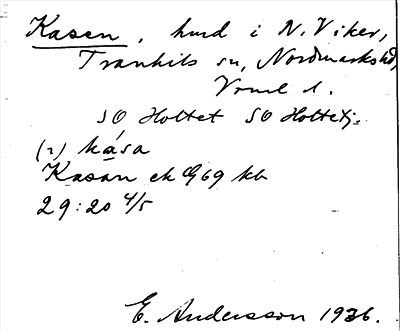 Kasen, hmd i N. Viker,
Trankils sn, Nordmarks hd,
Vrml l.
SO Holtet SO Holtetj.
(2) kåsa
Kasan ek G69 kb
29:20 4/5
E. Andersson 1936.